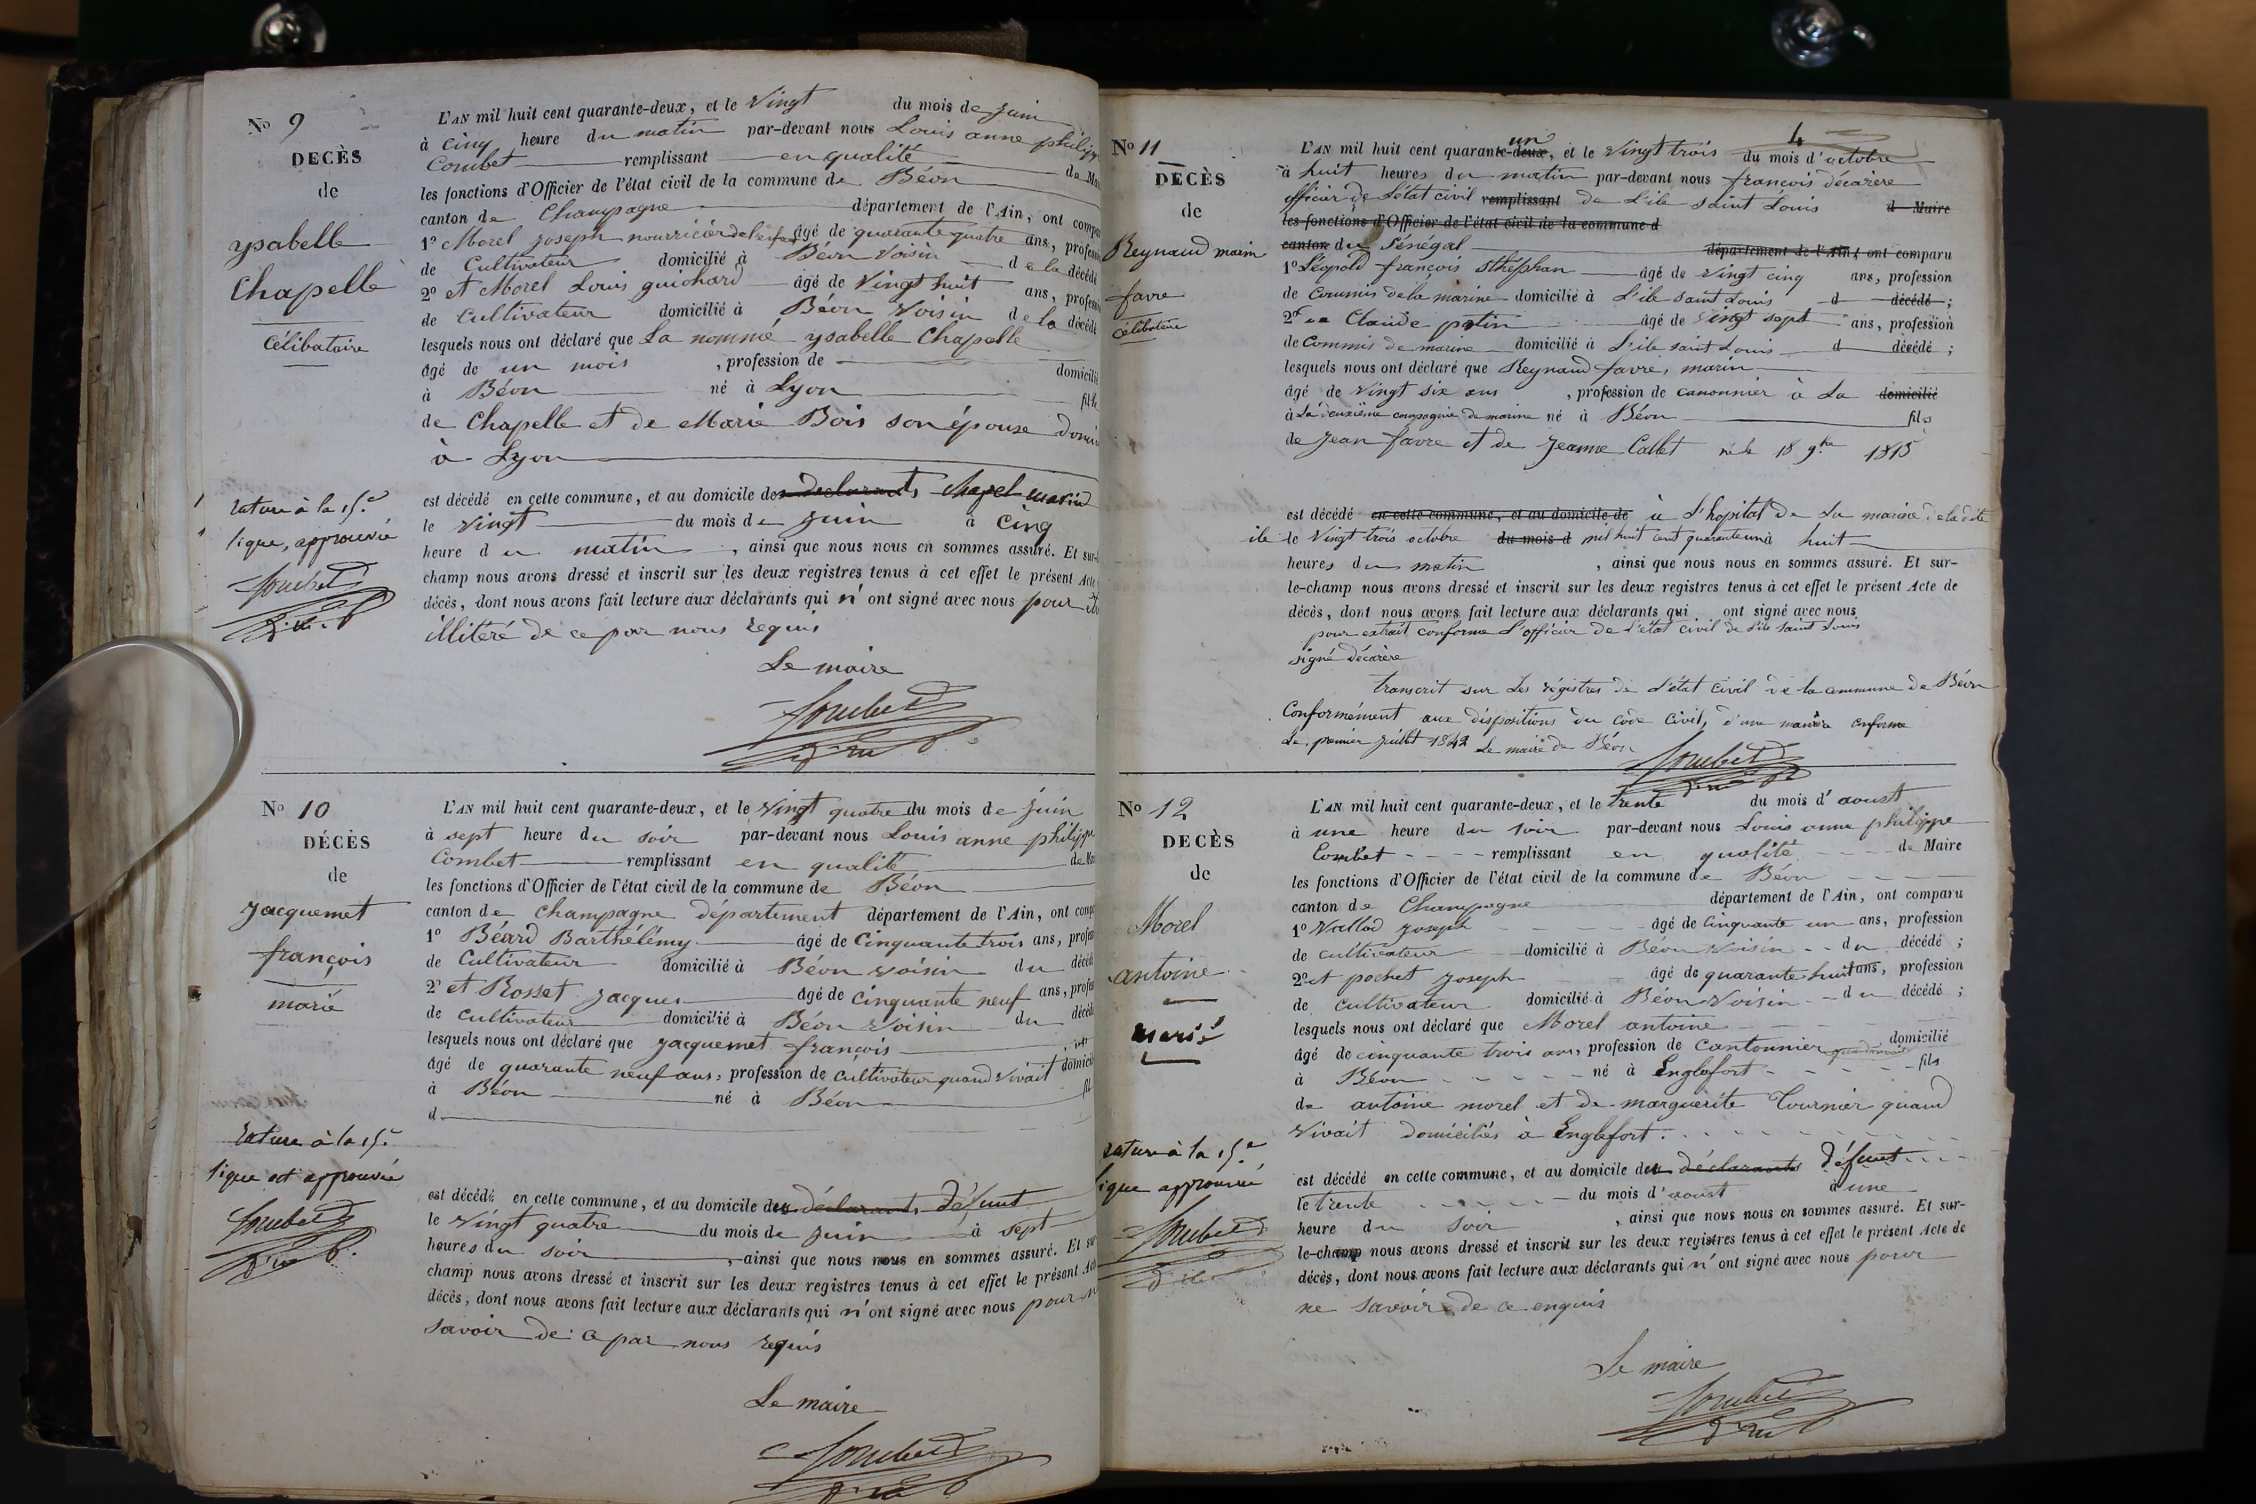 No 9
DECÈS
de
ysabelle
Chapelle
Célibataire
L'AN mil huit cent quarante-deux, et le vingt du mois de juin
à cinq heure du matin par-devant nous Louis anne philippe
Combet remplissant en qualité de Ma
les fonctions d'Officier de l'état civil de la commune de Béon
canton de Champagne département de l'Ain, ont compa
1º Morel joseph nourricier de l'enfant âgé de quarante quatre ans, profession
de Cultivateur domicilié à Béon voisin de la décédé
2º et Morel Louis guichard âgé de vingt huit ans, profession
de cultivateur domicilié à Béon voisin de la décédé
lesquels nous ont déclaré que La nommé ysabelle Chapelle
âgé de un mois , profession de domicilié
à Béon né à Lyon fille
de Chapelle et de Marie Bois son épouse domi
à Lyon
rature à la 15e
ligne, approuvée
Combet
est décédé en cette commune, et au domicile des déclarants
le vingt du mois de juin à cinq
heure du matin , ainsi que nous nous en sommes assuré. Et sur-
champ nous avons dressé et inscrit sur les deux registres tenus à cet effet le présent Acte
décès, dont nous avons fait lecture aux déclarants qui n'ont signé avec nous pour
illitéré de ce par nous requis
Le maire
Combet
No 10
DÉCÈS
de
Jacquemet
françois
marié
L'AN mil huit cent quarante-deux, et le vingt quatre du mois de juin
à sept heure du soir par-devant nous Louis anne philippe
Combet remplissant en qualité de Ma
les fonctions d'Officier de l'état civil de la commune de Béon
canton de Champagne département département de l'Ain, ont comp
1º Béard Barthélémy âgé de Cinquante trois ans, profes
de Cultivateur domicilié à Béon voisin du décédé
2º et Rosset jacques âgé de cinquante neuf ans, profes
de cultivateur domicilié à Béon voisin du décédé
lesquels nous ont déclaré que jacquemet françois
âgé de quarante neuf ans, profession de cultivateur quand vivait domicilié
à Béon né à Béon fil
d
rature à la 15e
ligne est approuvée
Combet
est décédé en cette commune, et au domicile du déclarants défunt
le vingt quatre du mois de juin à sept
heures du soir , ainsi que nous nous en sommes assuré. Et sur
champ nous avons dressé et inscrit sur les deux registres tenus à cet effet le présent Acte
décès, dont nous avons fait lecture aux déclarants qui n'ont signé avec nous pour
savoir de ce par nous requis
Le maire
Combet
4
No 11
DECÈS
de
Reynaud marin
favre
célibataire
L'AN mil huit cent quarante-deux un, et le vingt trois du mois d'octobre
à huit heures du matin par-devant nous françois décarère
officier de l'état civil remplissant de L'ile saint Louis d Maire
les fonctions d'Officier de l'état civil de la commune d
canton du Sénégal département de l'Ain, ont comparu
1º Léopold françois sthéphan âgé de vingt cinq ans, profession
de commis de la marine domicilié à L'ile saint Louis d décédé ;
2º Claude potin âgé de vingt sept ans, profession
de Commis de marine domicilié à L'ile saint Louis d décédé ;
lesquels nous ont déclaré que Reynaud favre, marin
âgé de vingt six ans , profession de canonnier à la domicilié
à La deuxième compagnie de marine né à Béon fils
de jean favre et de jeanne Callet né le 18 9bre 1815
est décédé en cette commune, et au domicile de à L'hopital de la marine de la dite
ile le vingt trois octobre du mois d mil huit cent quarante un à huit
heures du matin , ainsi que nous nous en sommes assuré. Et sur-
le-champ nous avons dressé et inscrit sur les deux registres tenus à cet effet le présent Acte de
décès, dont nous avons fait lecture aux déclarants qui ont signé avec nous
pour extrait conforme L'officier de l'état civil de l'ile saint Louis
signé décarère
transcrit sur Les régistres de L'état civil de la commune de Béon
Conformément aux dispositions du code civil, d'une manière conforme
Le premier juillet 1842 Le maire de Béon
Combet
No 12
DECÈS
de
Morel
antoine
marié
L'AN mil huit cent quarante-deux, et le trente du mois d'aoust
à une heure du soir par-devant nous Louis anne philippe
Combet remplissant en qualité de Maire
les fonctions d'Officier de l'état civil de la commune de Béon
canton de Champagne département de l'Ain, ont comparu
1º Vallod joseph âgé de cinquante un ans, profession
de cultivateur domicilié à Béon voisin du décédé ;
2º et pochet joseph âgé de quarante huit ans, profession
de cultivateur domicilié à Béon voisin du décédé ;
lesquels nous ont déclaré que Morel antoine
âgé de cinquante trois ans, profession de Cantonnier domicilié
à Béon né à Englefort fils
de antoine morel et de marguerite Tournier quand
vivait domiciliés à Englefort.
rature à la 15e
ligne approuvée
Combet
est décédé en cette commune, et au domicile du déclarants défunt
le trente du mois d'aoust à une
heure du soir , ainsi que nous nous en sommes assuré. Et sur-
le-champ nous avons dressé et inscrit sur les deux registres tenus à cet effet le présent Acte de
décès, dont nous avons fait lecture aux déclarants qui n'ont signé avec nous pour
ne savoir de ce enquis
Le maire
Combet